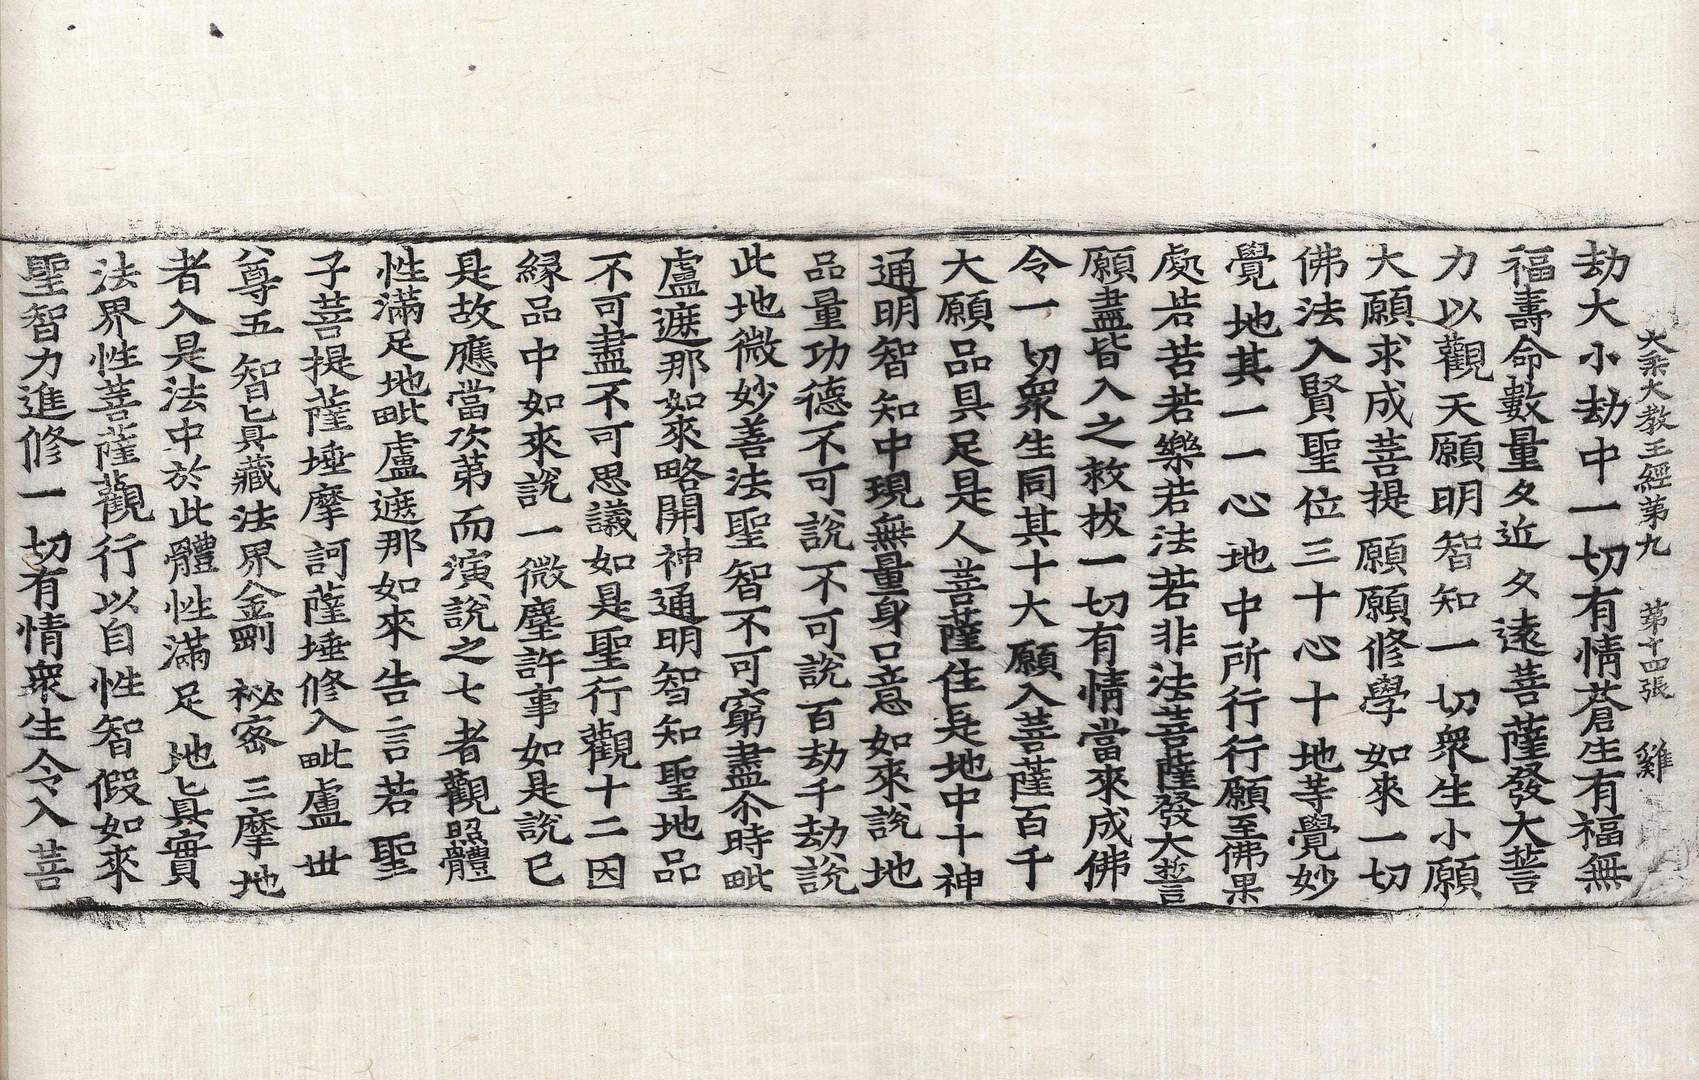 大乘大教王經第九 第十四張 雞
劫大小劫中一切有情蒼生有福無
福壽命數量夂近夂遠菩薩發大菩
力以觀天願明智知一切衆生小願
大願求成菩提願願修學如來一切
佛法入賢聖位三十心十地等覺妙
覺地其一一心地中所行行願至佛果
處若苦若樂若法若非法菩薩發大誓
願盡皆入之救拔一切有情當來成佛
令一切衆生同其十大願入菩薩百千
大願品具足是人菩薩住是地中十神
通明智知中現無量身口意如來說地
品量功德不可說不可說百劫千劫說
此地微妙善法聖智不可窮盡尒時毗
盧遮那如來略開神通明智知聖地品
不可盡不可思議如是聖行觀十二因
緣品中如來說一微塵許事如是說已
是故應當次第而演說之七者觀照體
性滿足地毗盧遮那如來告言若聖
子菩提薩埵摩訶薩埵修入毗盧世
尊五智匕具藏法界金剛祕密三摩地
者入是法中於此體性滿足地匕眞實
法界性菩薩觀行以自性智假如來
聖智力進修一切有情衆生令入菩